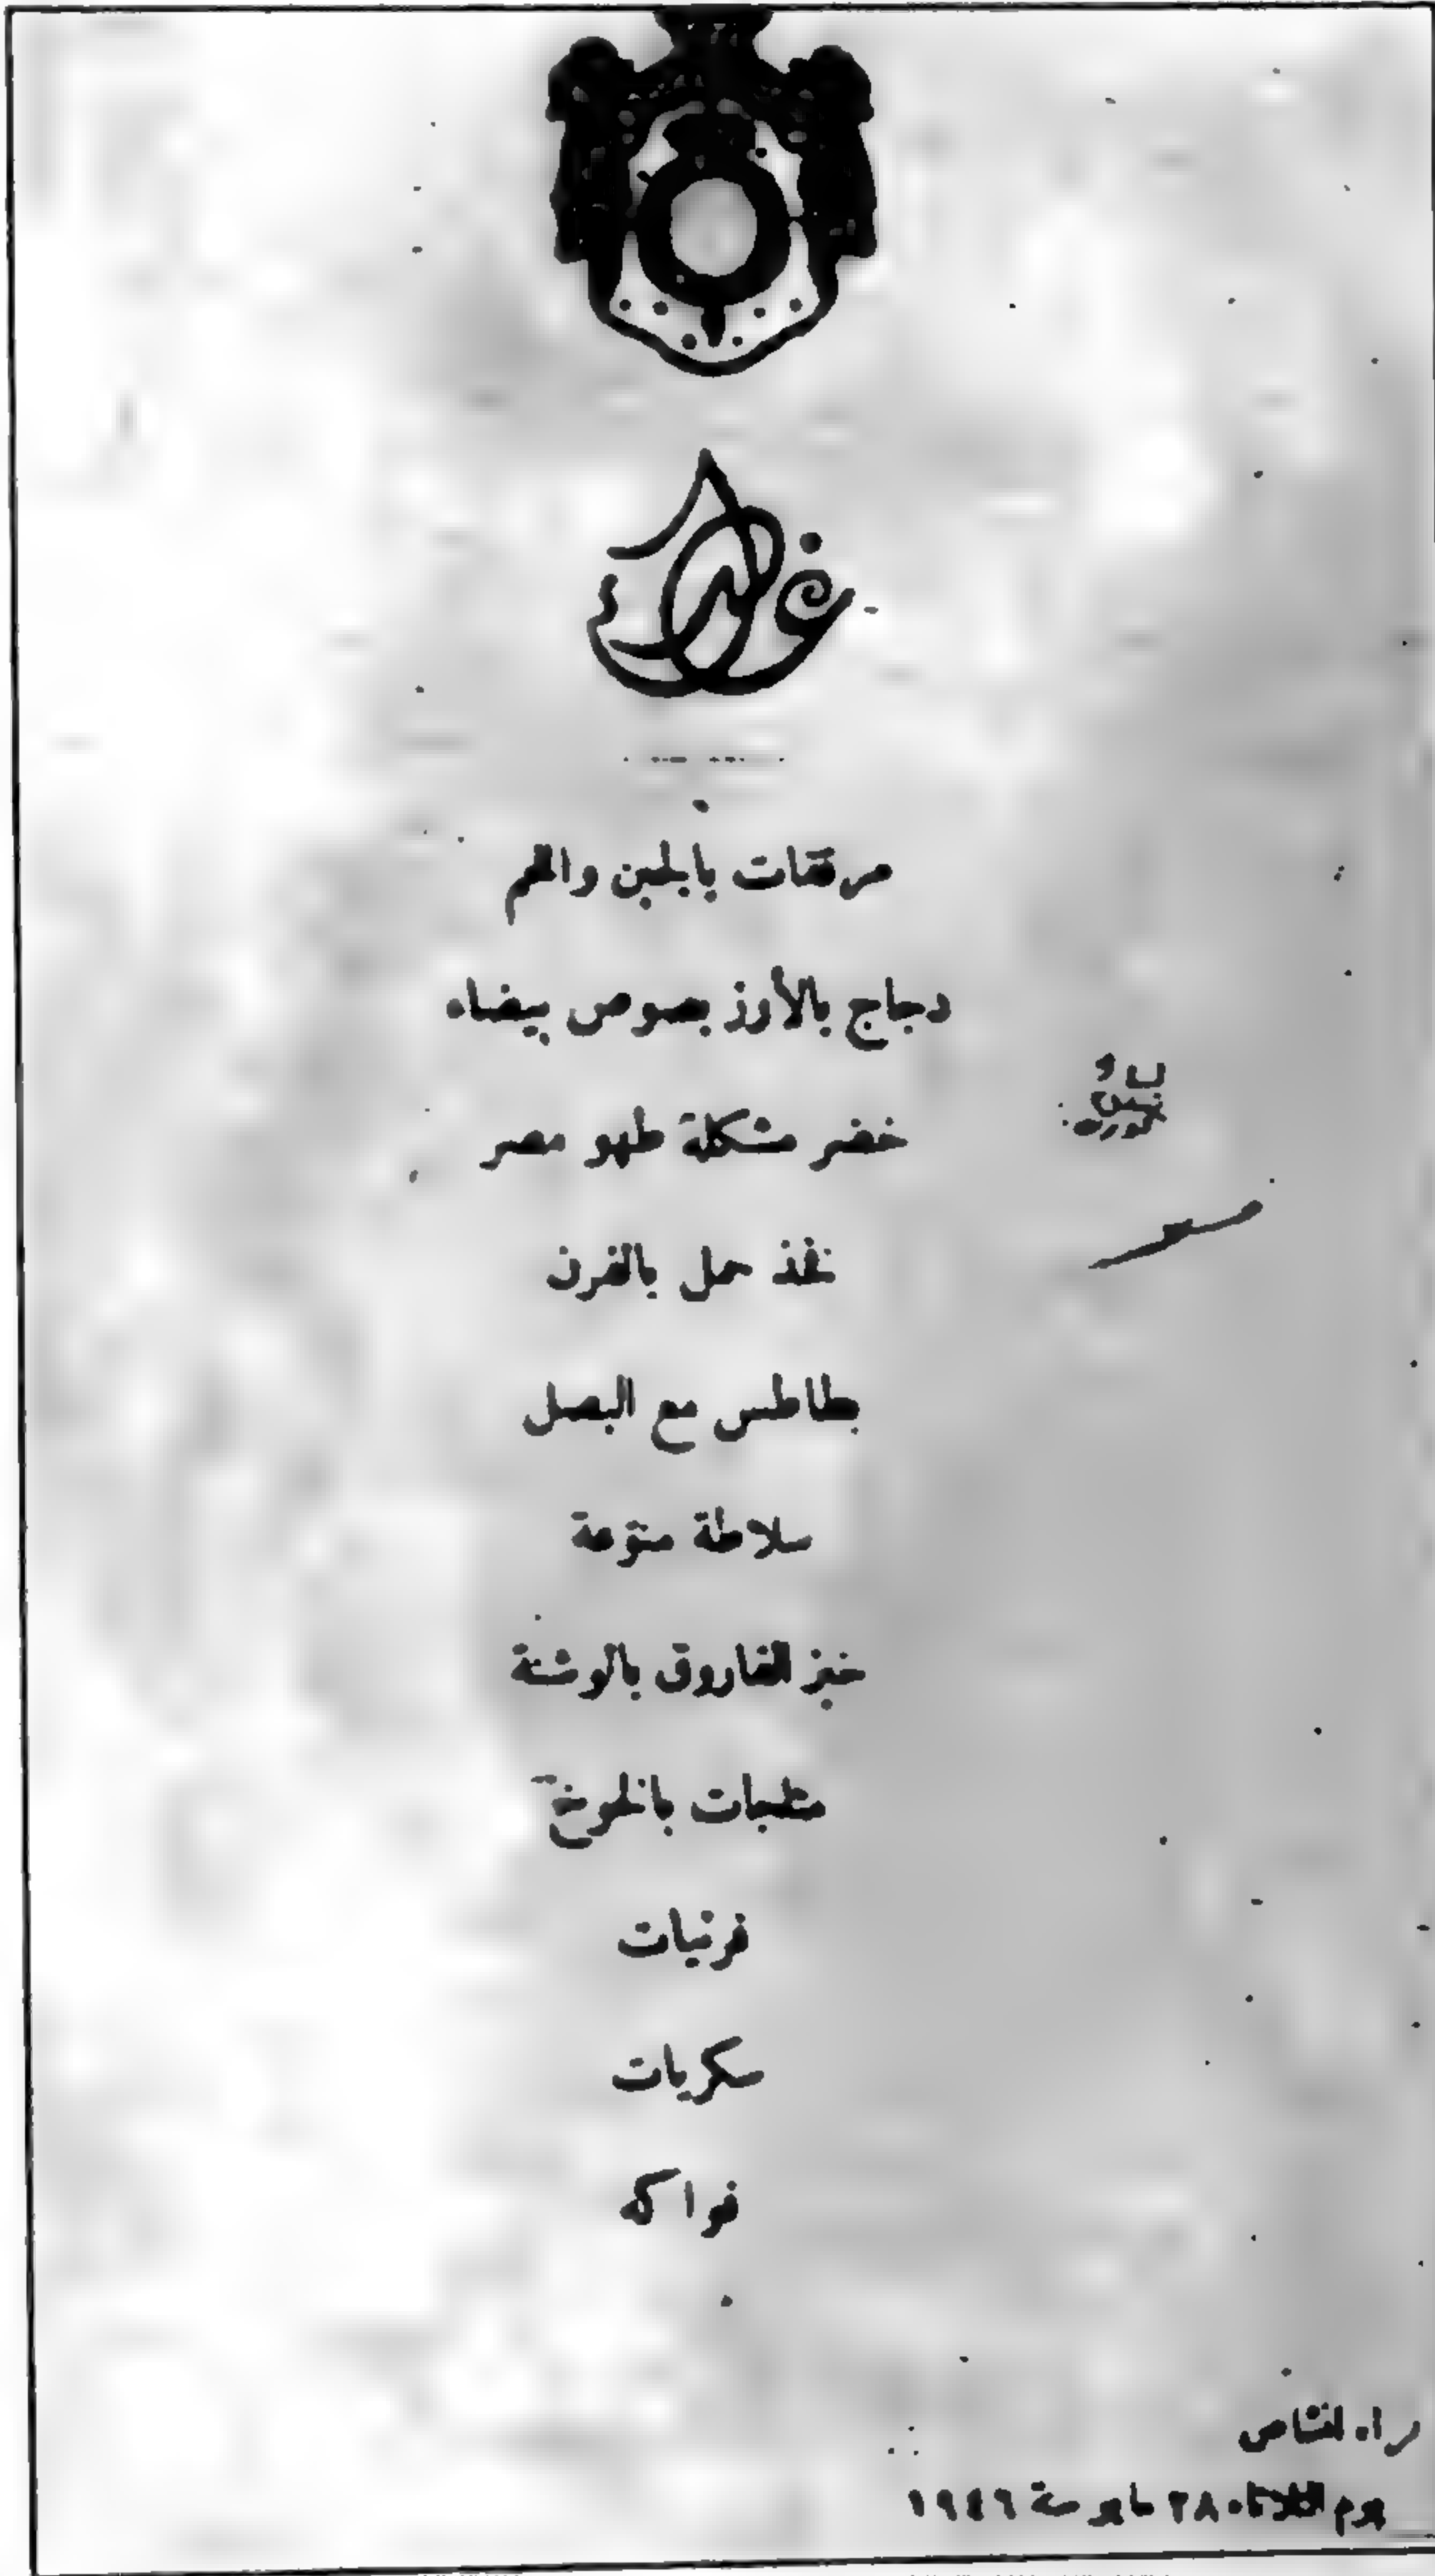 غداء
مرققات بالجبن واللحم
دجاج بالأرز بصوص بيضاء
خضر مشكلة طهو مصر
فخذ حمل بالفرن
بطاطس مع البصل
سلاطة منوّعة
خبز الفاروق بالوشنة
مثلجات بالخوخ
فرنيات
سكريات
فواكه
يوم الثلاثاء ٢٨ مايو سنة ١٩٤٦